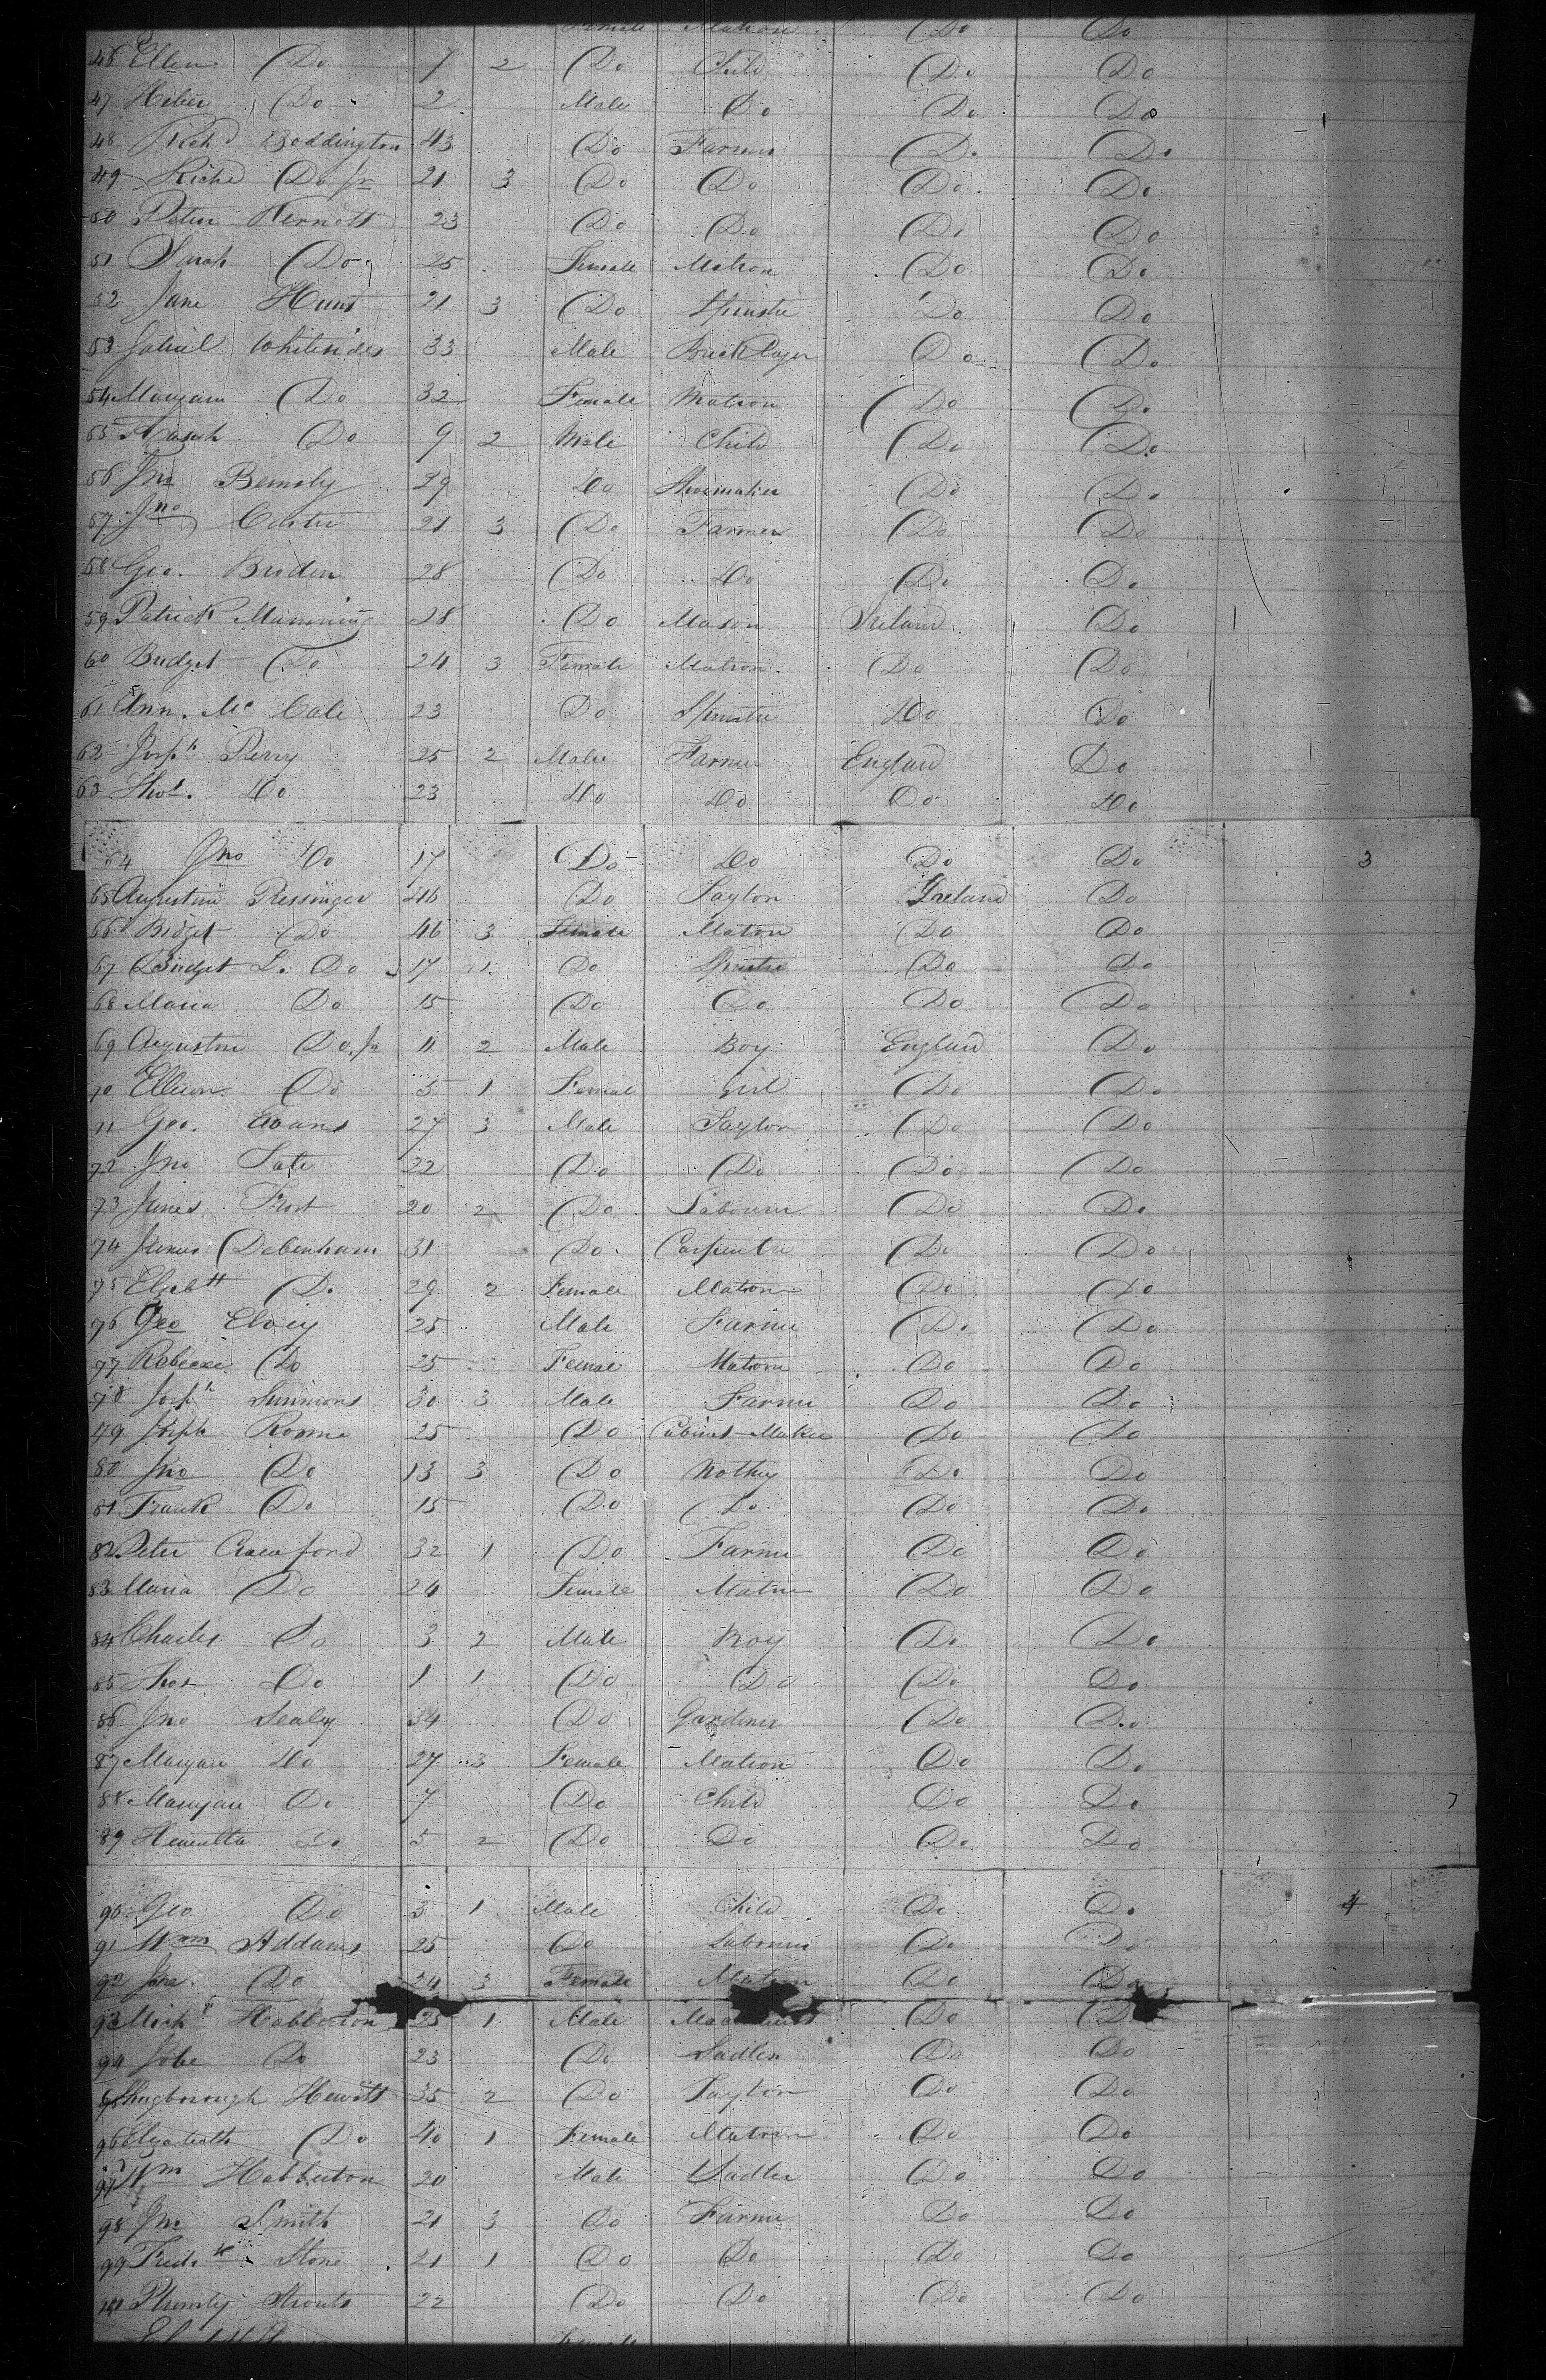 Female Matron Do Do
46 Ellen Do 1 2 Do Child Do Do
47 Heber Do 2 Male Do Do Do
48 Richd Boddington 43 Do Farmer Do Do
49 Richd Do Jr 21 3 Do Do Do Do
50 Peter Kernott 23 Do Do Do Do
51 Sarah Do 25 Female Matron Do Do
52 Jane Hunt 21 3 Do Spinster Do Do
53 Whitesides 33 Male Brick Layer Do Do
54 Maryann Do 32 Female Matron Do Do
55 Do 9 2 Male Child Do Do
56 Jno Bemsby 29 Do Shoemaker Do Do
57 Jno Carter 21 3 Do Farmer Do Do
58 Geo. Broden 28 Do Do Do Do
59 Patrick Manning 28 Do Mason Ireland Do
60 Bridget Do 24 3 Female Matron Do Do
61 Ann Mc Cale 23 Do Spinster Do Do
62 Josph Perry 25 2 Male Farmer England Do
63 Thos. Do 23 Do Do Do Do
64 Jno Do 17 Do Do Do Do 3
65 Augustine Pressinger 46 Do Taylor Ireland Do
66 Bidget Do 46 3 Female Matron Do Do
67 Bridget L. Do 17 1 Do Spinster Do Do
68 Maria Do 15 Do Do Do Do
69 Augustin Do. Jr 11 2 Male Boy England Do
70 Ellen Do 5 1 Female Girl Do Do
71 Geo. Evans 27 3 Male Taylor Do Do
72 Jno Tate 22 Do Do Do Do
73 James Frost 20 2 Do Labourer Do Do
74 James Debenham 31 Do Carpenter Do Do
75 Elizabth Do 29 2 Female Matron Do Do
76 Geo Elvey 25 Male Farmer Do Do
77 Rebecca Do 25 Female Matron Do Do
78 Josph Simmons 30 3 Male Farmer Do Do
79 Joseph Romne 25 Do Cabinet-Maker Do Do
80 Jno Do 13 3 Do Nothing Do Do
81 Frank Do 15 Do Do Do Do
82 Peter Crawford 32 1 Do Farmer Do Do
83 Maria Do 24 Female Matron Do Do
84 Charles Do 3 2 Male Boy Do Do
85 Thos Do 1 1 Do Do Do Do
86 Jno Sealey 34 Do Gardiner Do Do
87 Maryann Do 27 3 Female Matron Do Do
88 Maryann Do 7 Do Child Do Do
89 Henrietta Do 5 2 Do Do Do Do
90 Geo Do 3 1 Male Child Do Do 4
91 Wm Addams 25 Do Labourer Do Do
92 Jane Do 24 3 Female Matron Do Do
93 Habberton 25 1 Male Do Do
94 Jobe Do 23 Do Sadler Do Do
95 Shugborough Hewitt 35 2 Do Taylor Do Do
96 Elizabeth Do 40 1 Female Matron Do Do
97 Wm Habberton 20 Male Sadler Do Do
98 Jno Smith 21 3 Do Farmer Do Do
99 Fredk Stone 21 1 Do Do Do Do
Strouts 22 Do Do Do Do
Female